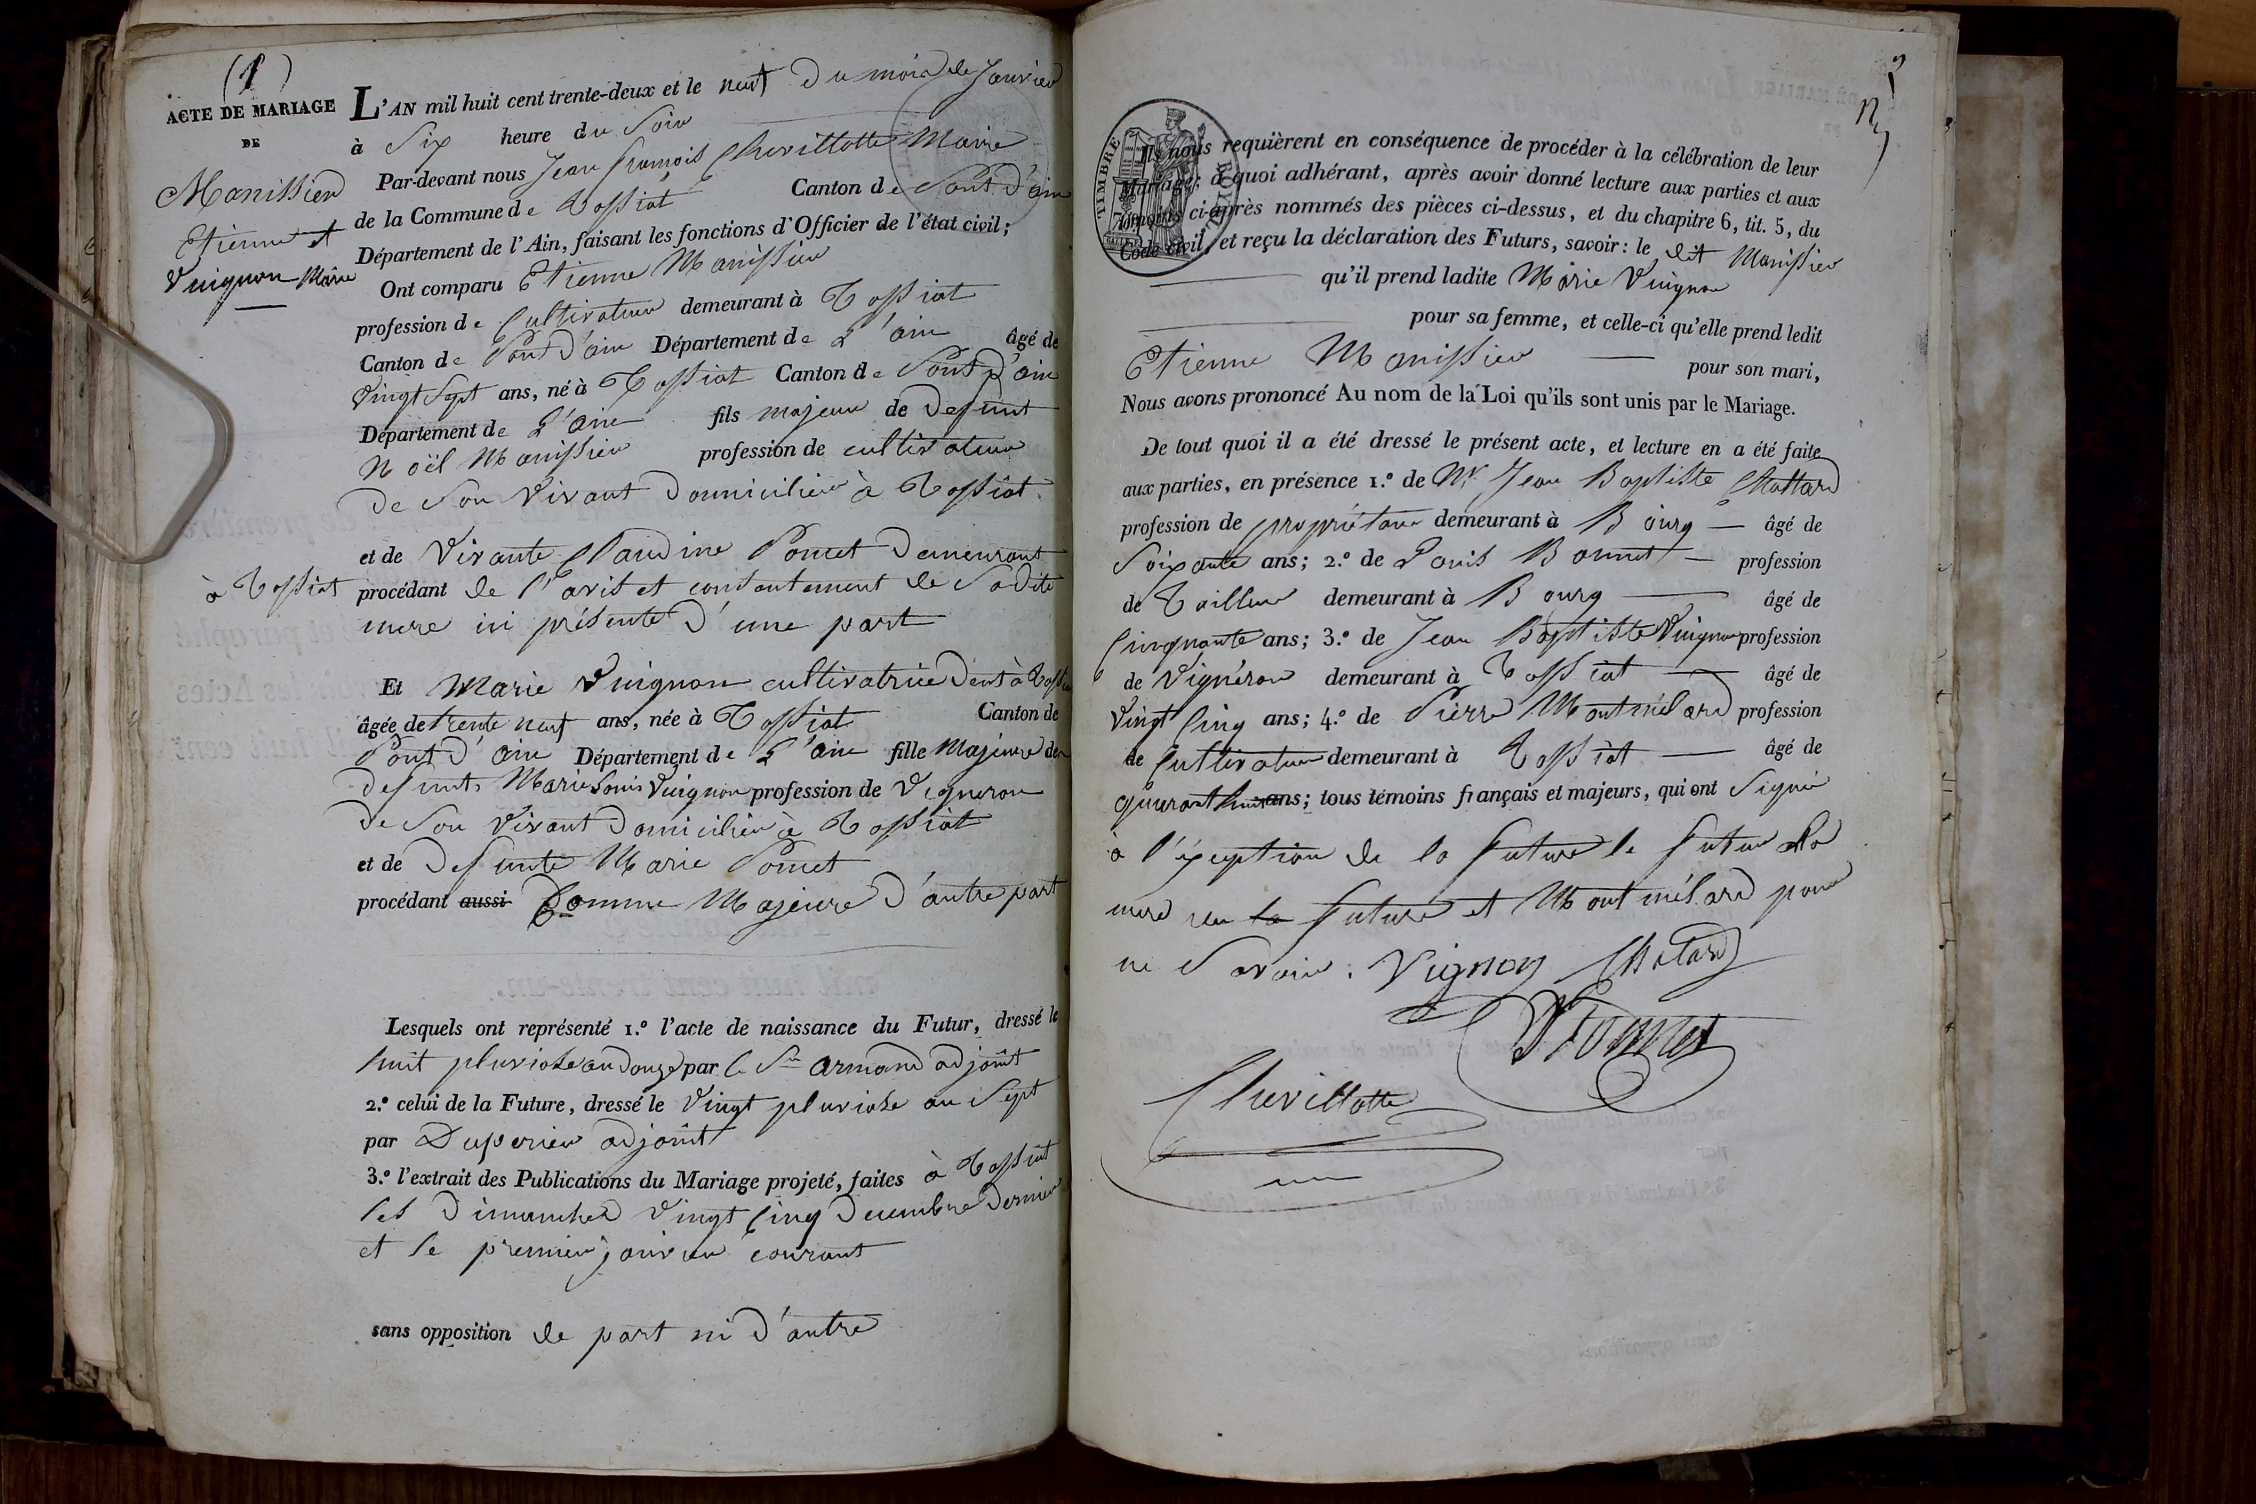 (1)
ACTE DE MARIAGE
DE
Manissier
Etienne et
Vuignon Marie
L'AN mil huit cent trente-deux et le neuf du mois de Janvier
à Six heure du Soir
Par-devant nous Jean françois Chevillotte Maire
de la Commune de Tossiat Canton de Pont d'ain
Département de l'Ain, faisant les fonctions d'Officier de l'état civil;
Ont comparu Etienne Manissier
profession de Cultivateur demeurant à Tossiat
Canton de Pont d'ain Département de L'ain âgé de
Vingt Sept ans, né à Tossiat Canton de Pont d'ain
Département de L'ain fils majeur de Defunt
Noël Manissier profession de cultivateur
de Son Vivant Domicilier à Tossiat
et de Vivante Claudine Pomet Demeurant
à Tossiat procédant de l'avis et consentement de Sadite
mere ici présente D'une part
Et Marie Vuignon cultivatrice Demt à Tossiat
âgée de trente neuf ans, née à Tossiat Canton de
Pont D'ain Département de L'ain fille Majeure de
defunts Marie Louis Vuignon profession de Vigneron
de Son Vivant Domicilier à Tossiat
et de Defunte Marie Pomet
procédant aussi Comme Majeure D'autre part
Lesquels ont représenté 1.º l'acte de naissance du Futur, dressé le
huit pluviose an douze par le Sr armand adjoint
2.º celui de la Future, dressé le Vingt pluviose an Sept
par Duperier adjoint
3.º l'extrait des Publications du Mariage projeté, faites à Tossiat
les Dimanches Vingt Cinq Decembre Dernier
et le premier janvier courant
sans opposition de part ni D'autre
TIMBRE ROYAL
Ils nous requièrent en conséquence de procéder à la célébration de leur
Mariage; à quoi adhérant, après avoir donné lecture aux parties et aux
témoins ci-après nommés des pièces ci-dessus, et du chapitre 6, tit. 5, du
Code civil, et reçu la déclaration des Futurs, savoir: le dit Manissier
qu'il prend ladite Marie Vuignon
pour sa femme, et celle-ci qu'elle prend ledit
Etienne Manissier pour son mari,
Nous avons prononcé Au nom de la Loi qu'ils sont unis par le Mariage.
De tout quoi il a été dressé le présent acte, et lecture en a été faite
aux parties, en présence 1.º de Mr Jean Baptiste Chattard
profession de propriétaire demeurant à Bourg âgé de
Soixante ans; 2.º de Louis Bonnet profession
de Tailleur demeurant à Bourg âgé de
Cinquante ans; 3.º de Jean Baptiste Vuignon profession
de Vigneron demeurant à Tossiat âgé de
Vingt Cinq ans; 4.º de Pierre Montmélard profession
de Cultivateur demeurant à Tossiat âgé de
quarant ans; tous témoins français et majeurs, qui ont Signé
à l'éxception de la future le futur & la
mere la future et Montmélard pour
ne Savoir. Vignon Chatard
Chevillotte